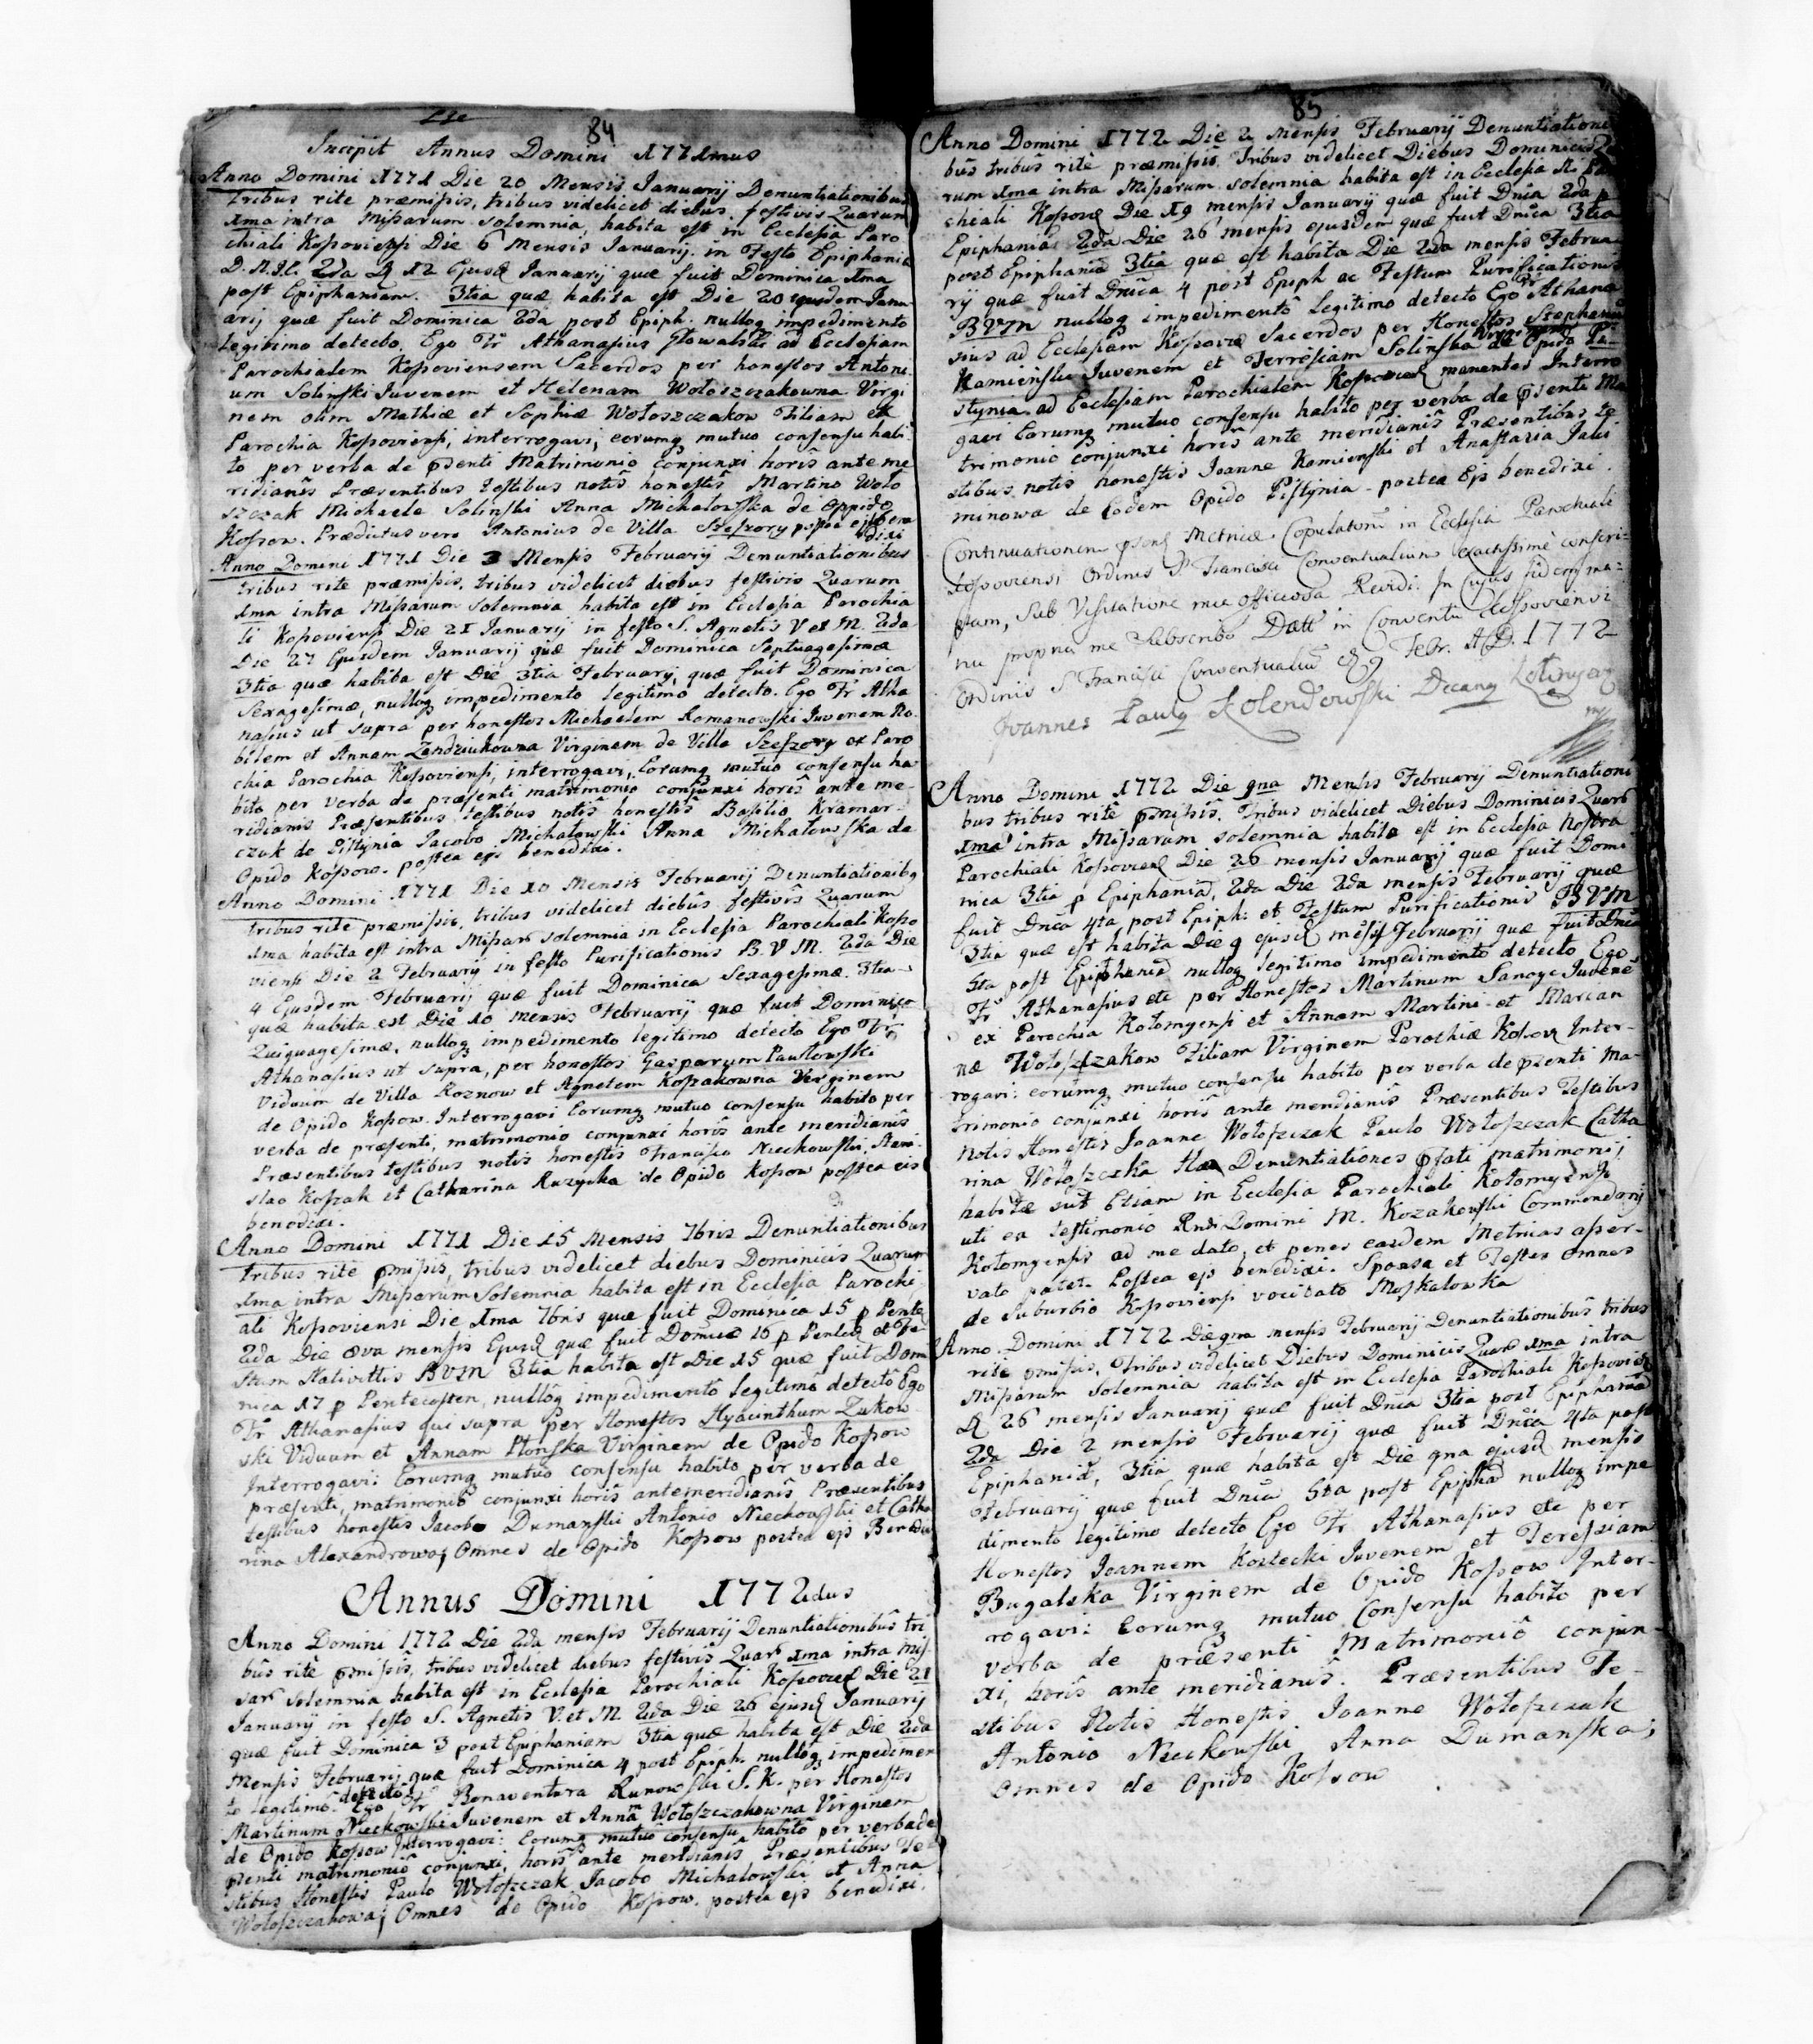 84
Incipit Annus Domini 1771mus
Anno Domini 1771 Die 20 Mensis Januarij Denuntiationibus
tribus rite præmissis, tribus videlicet diebus festivis Quarum
1ma intra Missarum solemnia, habita est in Ecclesia Paro
chiali Kossoviensi Die 6 Mensis Januarij in Festo Epiphaniæ
D.N.J.C. 2da 12 Ejusd Januarij quæ fuit Dominica 1ma
post Epiphaniam. 3tia quæ habita est Die 20 ejusdem Janu
arij quæ fuit Dominica 2da post Epiph. nulloq impedimento
legitimo detecto, Ego Fr Athanasius Głowalski ad Ecclesiam
Parochialem Kossoviensem Sacerdos per honestos Antoni
um Solinski Juvenem et Helenam Wołoszczakowna Virgi
nem olim Mathiæ et Sophiæ Wołoszczakow Filiam ex
Parochia Kossoviensi, interrogavi, eorumq mutuo consensu habi
to per verba de psenti Matrimonio conjunxi horis ante me
ridianis Præsentibus testibus notis honestis Martino Woło
szczak Michaele Solinski Anna Michalowska de Oppido
Kossow. Prædictus vero Antonius de Villa Szeszory postea ejs bene
dixi
Anno Domini 1771 Die 3 Mensis Februarij Denuntiationibus
tribus rite præmissis, tribus videlicet diebus festivis Quarum
1ma intra Missarum solemnia habita est in Ecclesia Parochia
li Kossoviensi Die 21 Januarij in festo S. Agnetis V et M. 2da
Die 27 Ejusdem Januarij quæ fuit Dominica Septuagesimæ
3tia quæ habita est Die 3tia Februarij, quæ fuit Dominica
Sexagesimæ, nulloq impedimento legitimo detecto. Ego Fr Atha
nasius ut supra per honestos Michaelem Romanowski Juvenem No
bilem et Annam Zandziukowna Virginem de Villa Szeszory ex Paro
chia Parochia Kossoviensi, interrogavi, Eorumq mutuo consensu ha
bito per verba de præsenti matrimonio conjunxi horis ante me
ridianis Præsentibus testibus notis honestis Basilio Kramar
czuk de Pistynia Jacobo Michalowski Anna Michalowska de
Opido Kossow. postea ejs benedixi.
Anno Domini 1771 Die 10 Mensis Februarij Denuntiationibq
tribus rite præmissis, tribus videlicet diebus festivis Quarum
1ma habita est intra Missar solemnia in Ecclesia Parochiali Kosso
viensi Die 2 Februarij in festo Purificationis B.V.M. 2da Die
4 Ejusdem Februarij quæ fuit Dominica Sexagesimæ. 3tia
quæ habita est Die 10 mensis Februarij quæ fuit Dominica
Quiquagesimæ, nulloq impedimento legitimo detecto Ego Fr
Athanasius ut supra, per honestos Gasparum Pawłowski
Viduum de Villa Roznow et Agnetem Kossakowna Virginem
de Opido Kossow. Interrogavi Eorumq mutuo consensu habito per
verba de præsenti, matrimonio conjunxi horis ante meridianis
Præsentibus testibus notis honestis Francisco Nieckowski, Stani
slao Kossak et Catharina Ruzycka de Opido Kossow postea eis
benedixi.
Anno Domini 1771 Die 15 Mensis 7bris Denuntiationibus
tribus rite pmissis, tribus videlicet diebus Dominicis Quarum
1ma intra Missarum Solemnia habita est in Ecclesia Parochi
ali Kossoviensi Die 1ma 7bris quæ fuit Dominica 15 p Pente
2da Die 8va mensis Ejusd quæ fuit Domica 16 p Pentec et Fe
stum Nativittis BVM 3tia habita est Die 15 quæ fuit Dom
nica 17 p Pentecosten, nulloq impedimento legitimo detecto Ego
Fr Athanasius qui supra per Honestos Hyacinthum Zukow
ski Viduum et Annam Płonska Virginem de Opido Kossow
Interrogavi: Eorumq mutuo consensu habito per verba de
præsenti, matrimonio conjunxi horis antemeridianis Præsentibus
testibus honestis Jacobo Dumanski Antonio Nieckowski et Catha
rina Alexandrowa; Omnes de Opido Kossow postea ejs Benedixi
Annus Domini 1772dus
Anno Domini 1772 Die 2da mensis Februarij Denuntiationibus tri
bus rite pmissis, tribus videlicet diebus festivis Quar 1ma intra Mis
sar Solemnia habita est in Ecclesia Parochiali Kossovien Die 21
Januarij in festo S. Agnetis V. et M. 2da Die 26 ejusd Januarij
quæ fuit Dominica 3 post Epiphaniam 3tia quæ habita est Die 2da
Mensis Februarij quæ fuit Dominica 4 post Epiph. nulloq impedimen
to legitimo detecto Ego Fr Bonaventura Runowski S.K. per Honestos
Martinum Nieckowski Juvenem et Annam Wołoszczakowna Virginem
de Opido Kossow Interrogavi: Eorumq mutuo consensu habito per verba de
psenti matrimonio conjunxi, horis ante meridianis Præsentibus Te
stibus Honestis Paulo Wołoszczak Jacobo Michalowski et Anna
Wołoszczakowa; Omnes de Opido Kossow. postea ejs benedixi.
85
Anno Domini 1772 Die 2 mensis Februarij Denuntiationi
bus tribus rite præmissis, Tribus videlicet Diebus Dominicis
rum 1ma intra Missarum solemnia habita est in Ecclesia N. Paro
cheali Kossovien Die 19 mensis Januarij quæ fuit Dnica 2da p
Epiphania 2da Die 26 mensis ejusdem quæ fuit Dnica 3tia
post Epiphania 3tia quæ est habita Die 2da mensis Februa
rij quæ fuit Dnica 4 post Epiph ac Festum Purificationis
BVM nulloq impedimento legitimo detecto Ego Fr Athana
sius ad Ecclesiam Kossovien Sacerdos per Honestos Stephanum
Kamieński Juvenem et Terresiam Solinska Virginem de Opido Pi
stynia ad Ecclesiam Parochialem Kossovien manentes Interro
gavi Eorumq mutuo consensu habito per verba de psenti Ma
trimonio conjunxi horis ante meridianis Præsentibus te
stibus notis honestis Joanne Kamienski et Anastazia Jaki
minowa de Eodem Opido Pistynia postea Ejs benedixi.
Continuationem psent Metricæ Copulatorũ in Ecclesia Parochiali
Kossoviensi Ordinis S. Francisci Conventualium exactissimè conscri-
ptam, sub Visitatione mea officiosa Revidi. In Cujus fidem ma-
nu propria me Subscribo Datt in Conventu Kossoviensi
Ordinis S Francisci Conventualiũ 9 Febr. A.D. 1772
Joannes Paulq Kolendowski Decanq Kolomyen
mp
Anno Domini 1772 Die 9na Mensis Februarij Denuntiationi
bus tribus rite pmissis. Tribus videlicet Diebus Dominicis Quar
1ma intra Missarum solemnia habita est in Ecclesia Nostra
Parochiali Kossovien Die 26 mensis Januarij quæ fuit Domi
nica 3tia p Epiphania, 2da Die 2da mensis Februarij quæ
fuit Dnica 4ta post Epiph: et Festum Purificationis BVM
3tia quæ est habita Die 9 ejusd mesis Februarij quæ fuit Dnica
5ta post Epiphania nulloq legitimo impedimento detecto Ego
Fr Athanasius etc per Honestos Martinum Sanoyc Juvene
ex Parochia Kołomyensi et Annam Martini et Marian
næ Wołoszczakow Filiam Virginem Parochiæ Kossov Inter-
rogavi: eorumq mutuo consensu habito per verba de psenti ma-
trimonio conjunxi horis ante meridianis Præsentibus Testibus
Notis Honestis Joanne Wołoszczak Paulo Wołoszczak Catha
rina Wołoszczka Hæ Denuntiationes pfati matrimonij
habitæ sut Etiam in Ecclesia Parochiali Kołomyensi
uti ex testimonio Rndi Domini M. Kozakowski Commendarij
Kołomyensis ad me dato, et penes easdem Metricas asser-
vato patet. Postea ejs benedixi. Sponsa et Testes omnes
de Suburbio Kossoviensi vocitato Moskalowka
Anno Domini 1772 Die 9na mensis Februarij Denuntiationibus tribus
rite pmissis, Tribus videlicet Diebus Dominicis Quar 1ma intra
Missarum Solemnia habita est in Ecclesia Parochiali Kossovien
D 26 mensis Januarij quæ fuit Dnica 3tia post Epiphania
2da Die 2 mensis Februarij quæ fuit Dnica 4ta post
Epiphania, 3tia quæ habita est Die 9na ejusd mensis
Februarij quæ fuit Dnica 5ta post Epipha nulloq impe
dimento legitimo detecto Ego Fr Athanasius etc per
Honestos Joannem Kostecki Juvenem et Teresiam
Bugalska Virginem de Opido Kossow Inter-
rogavi: Eorumq mutuo Consensu habito per
verba de præsenti Matrimonio conjun-
xi, horis ante meridianis. Præsentibus Te-
stibus Notis Honestis Joanne Wołoszczak
Antonio Nieckowski Anna Dumanska;
Omnes de Opido Kossow